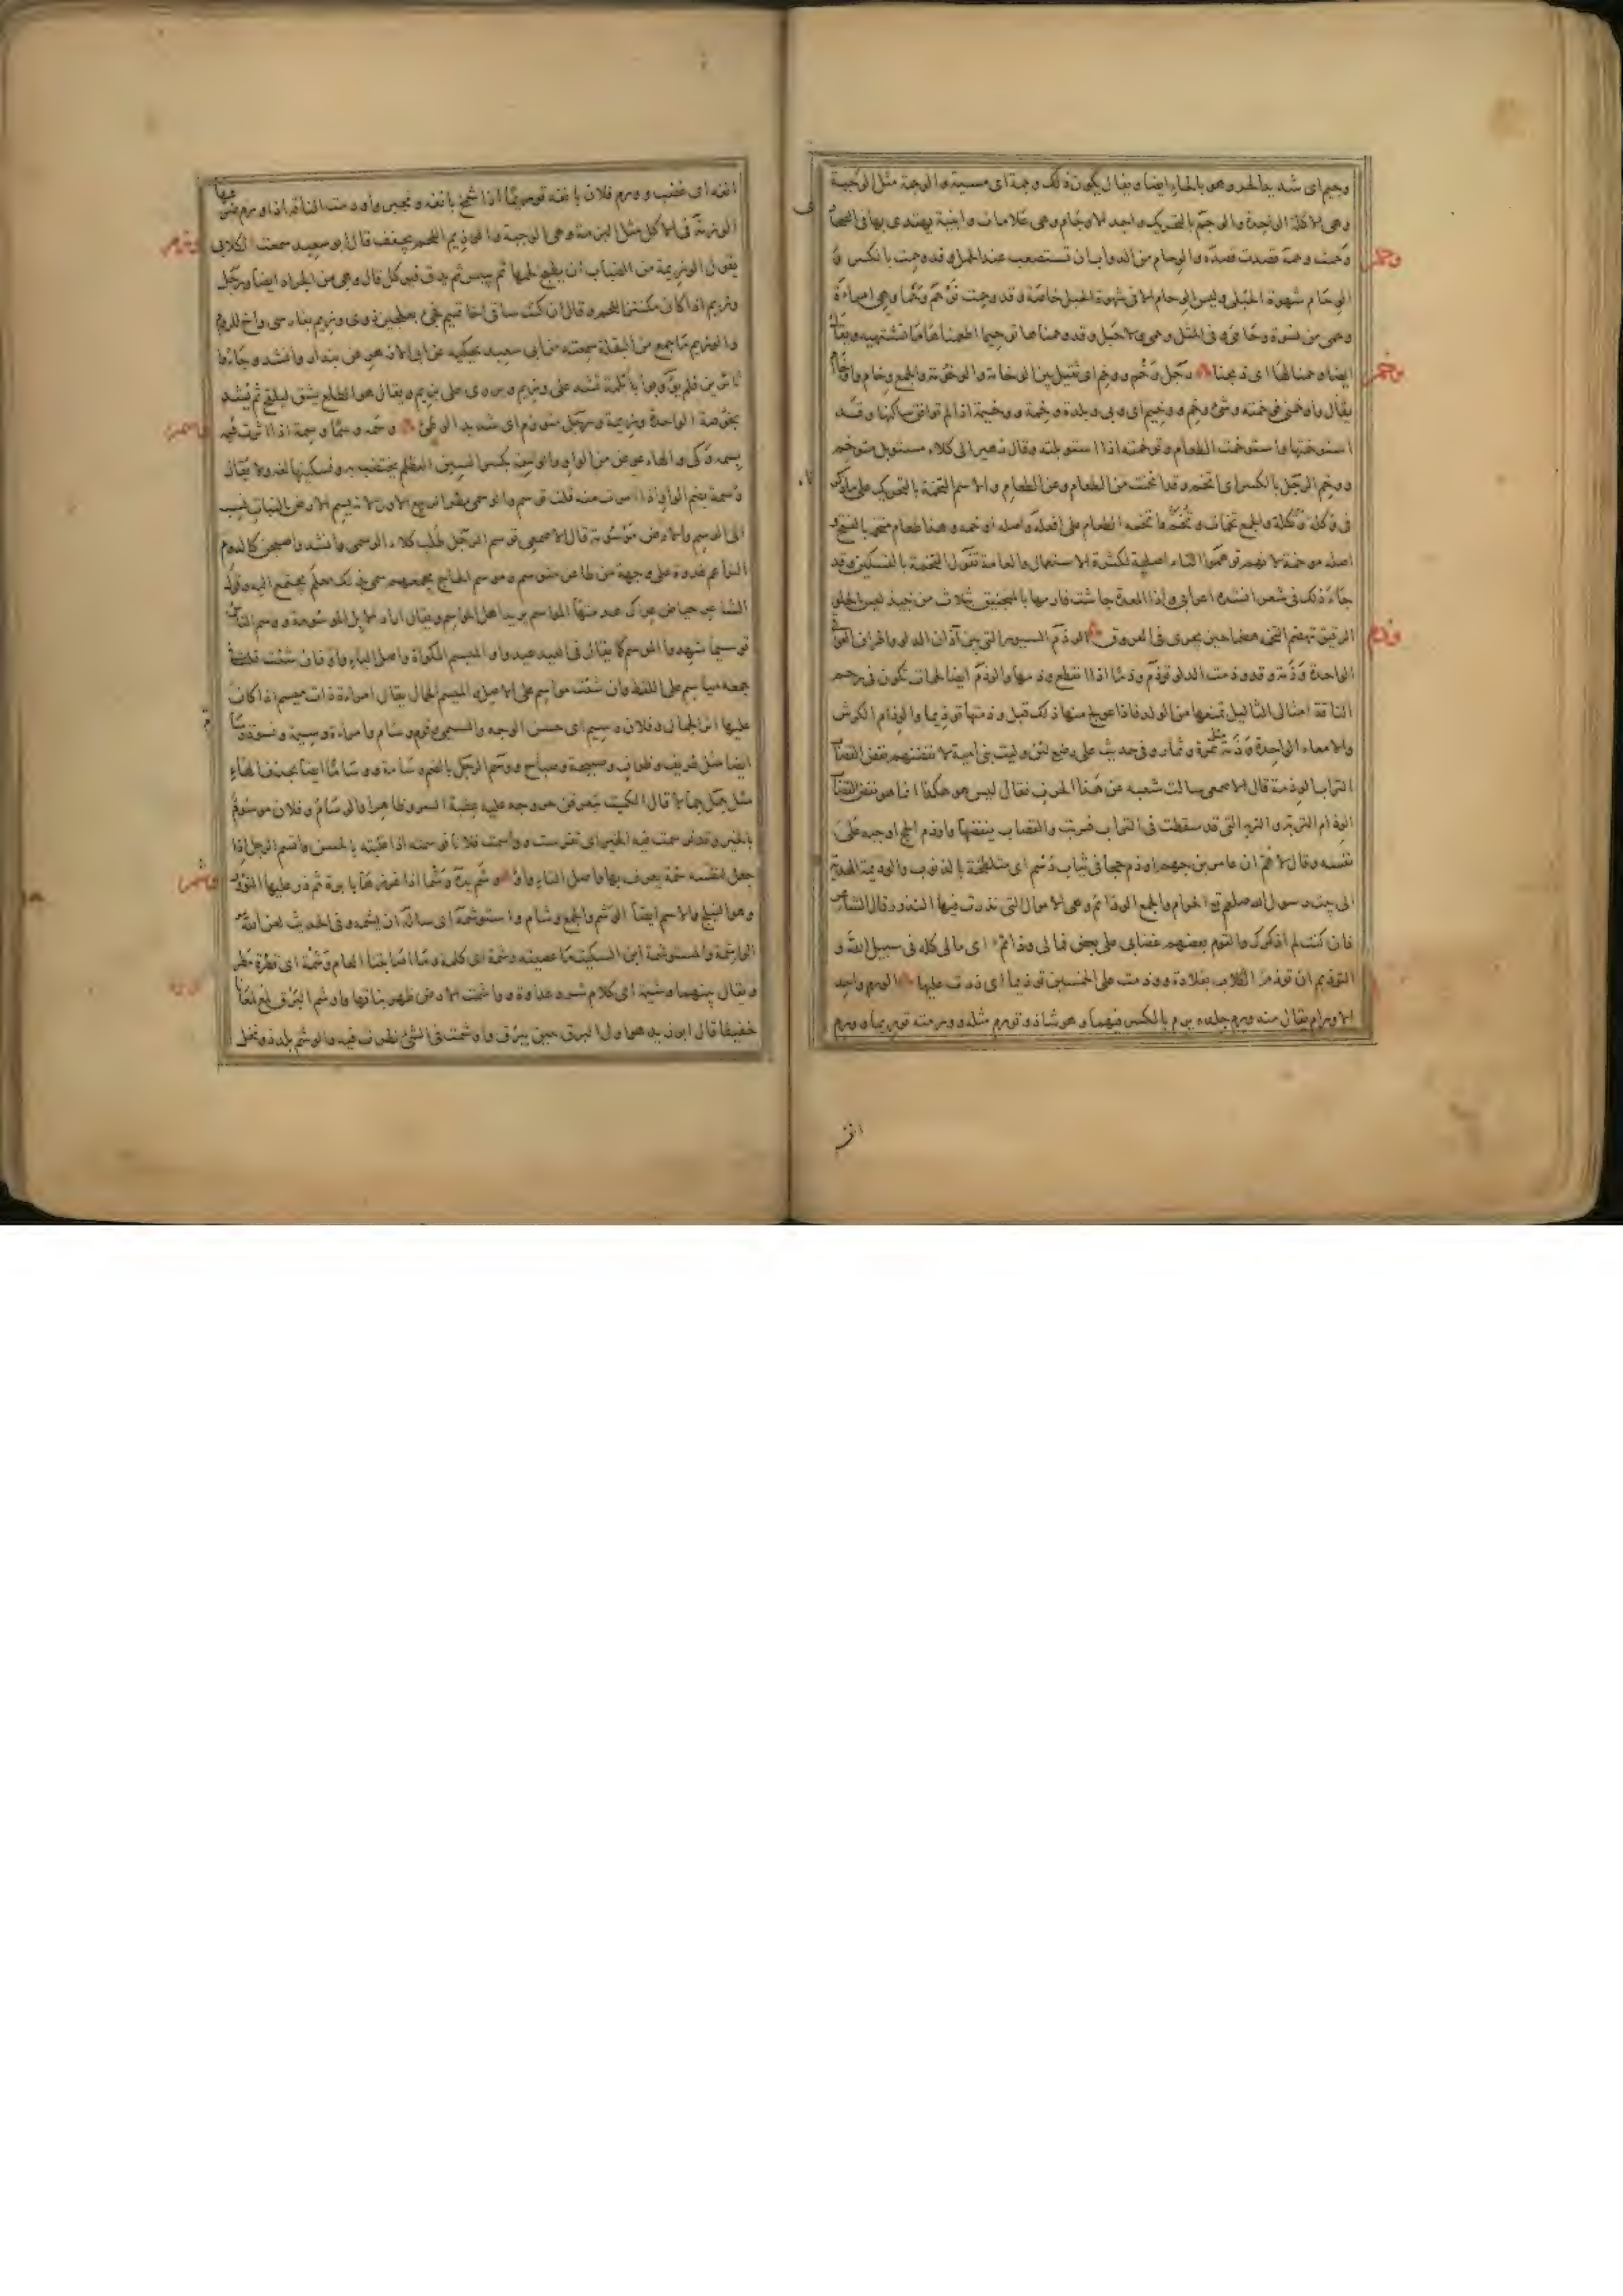 وجيم اى شديد الحر وهو بالحاء ايضا ويقال يكون ذلك وجمة اى مسبة والوجمة مثل الوجبة
وهى الاكلة الواحدة والوجم بالتحريك واحد الاوجام وهى علامات وابنية يهتدى بها فى الصحا
وحمت وحمة قصدت قصده والوحام من الدواب ان تستصعب عند الحمل وقد وحمت بالكسر و
وحم
الوحام شهوة الحبلى وليس الوحام الا فى شهوة الحبل خاصة وقد وحمت توحم وحما وهى امراءة
وحمى من نسوة وحامى وفى المثل وحمى ولا حبل وقد وحمناها توحيما اطعمناها ما تشتهيه ويقال
ايضا وحمنا لها اى ذبحنا رجل وخم ووخيم اى ثقيل بين الوخامة والوخومة والجمع وخام واوخام
وخم
يقال واخمنى فوخمته وشئ وخم ووخيم اى وبى وبلدة وخمة ووخيمة اذا لم توافق ساكنها وقد
استوخمتها واستوخمت الطعام وتوخمته اذا استوبلته وقال زهير الى كلاء مستوبل متوخم
ووخم الرجل بالكسر اى اتخم وقد اتخمت من الطعام وعن الطعام والاسم التخمة بالتحريك على ما ذكر
فى وكلة وتكلة والجمع تخمات وتخم واتخمه الطعام على افعله واصله اوخمه وهذا طعام متخمة بالفتح و
اصله موخمة لانهم توهموا التاء اصلية لكثرة الاستعمال والعامة تقول التخمة بالتسكين وقد
جاء ذلك فى شعر انشده اعرابى واذا المعدة جاشت فارمها بالمنجنيق ثلاث من نبيذ ليس بالحلو
الرقيق تهضم التخمة هضما حين يجرى فى العروق الوذم السيور التى بين آذان الدلو واطراف العراقى
وذم
الواحدة وذمة وقد وذمت الدلو توذم وذما اذا انقطع وذمها والوذم ايضا لحمات تكون فى رحم
الناقة امثال الثآليل تمنعها من الولد فاذا عولج منها ذلك قيل وذمتها توذيما والوذام الكرش
والامعاء الواحدة وذمة مثل ثمرة وثمار وفى حديث على رضع لئن وليت بنى امية لانفضنهم نفض القصاب
التراب الوذمة قال الاصمعى سالت شعبة عن هذا الحرف فقال ليس هو هكذا انما هو نفض القصاب
الوذام التربة والتربة التى قد سقطت فى التراب فتربت والقصاب ينفضها واوذم الحج اوجبه على
نفسه وقال لاهم ان عامر بن جهم اوذم حجا فى ثياب دسم اى متلطخة بالذنوب والوذيمة الهدية
الى بيت رسول الله صلعم الحرام والجمع الوذائم وهى الاموال التى نذرت فيها النذور وقال الشاعر
فان كنت لم اذكرك والقوم بعضهم غضابى على بعض فمالى وذائم اى مالى كله فى سبيل الله و
التوذيم ان توذم الكلاب بقلادة ووذمت على الخمسين توذيما اى زدت عليها الورم واحد
الاورام يقال منه ورم جلده يرم بالكسر فيهما وهو شاذ وتورم مثله وورمته توريما وورم
انفه
انفه اى غضب وورم فلان بانفه توريما اذا شمخ بانفه وتجبر واورمت الناقة اذا ورم ضرعها
الوزمة فى الاكل مثل البزمة وهى الوجبة والوزيم اللحم يجفف قال ابو سعيد سمعت الكلابى
وزم
يقول الوزيمة من الضباب ان يطبخ لحمها ثم ييبس ثم يدق فيوكل قال وهى من الجراد ايضا ورجل
وزيم اذا كان مكتنز اللحم وقال ان كنت ساقى اخا تميم فجئ بعلجين ذوى وزيم بفارسى واخ للروم
والوزيم ما جمع من البقلة سمعته من ابى سعيد يحكيه عن ابى الازهر عن بندار وانشد وجاءوا
ثائرين فلم يؤبوا بابلمة تشد على وزيم ويروى على بزيم ويقال هو الطلع يشق ليلقح ثم يشد
بخوصة الواحدة وزيمة ورجل متوزم اى شديد الوطئ وسمه وسما وسمة اذا اثرت فيه
وسم
بسمة وكى والهاء عوض من الواو والوسمة بكسر السين العظلم يختضب به وتسكينها لغة ولا يقال
وسمة بضم الواو واذا امرت منه قلت توسم والوسمى مطر الربيع الاول لانه يسم الارض بالنبات نسب
الى الوسم والارض موسومة قال الاصمعى توسم الرجل طلب كلاء الوسمى وانشد واصبحن كالدوم
النواعم غدوة على وجهة من ظاعن متوسم وموسم الحاج مجمعهم سمى بذلك لانه معلم يجتمع اليه وقول
الشاعر حياض عراك هدمتها المواسم يريد اهل المواسم ويقال اراد الابل الموسومة ووسم الناس
توسيما شهدوا الموسم كما يقال فى العيد عيدوا والميسم المكواة واصل الياء واو فان شئت قلت فى
جمعه مياسم على اللفظ وان شئت مواسم على الاصل والميسم الجمال يقال امراءة ذات ميسم اذا كان
عليها اثر الجمال وفلان وسيم اى حسن الوجه والسيمى وقوم وسام وامراءة وسيمة ونسوة وسام
ايضا مثل ظريف وظراف وصبيحة وصباح ووسم الرجل بالضم وسامة ووساما ايضا بحذف الهاء
مثل جمل جمالا قال الكميت يتعرفن حر وجه عليه عقبة السرو ظاهرا والوسام وفلان موسوم
بالخير وقد توسمت فيه الخير اى تفرست وواسمت فلانا فوسمته اذا غلبته بالحسن واتسم الرجل اذا
جعل لنفسه سمة يعرف بها واصل التاء واو وشم يده وشما اذا غرزها بابرة ثم ذر عليها النؤر
وشم
وهو النيلج والاسم ايضا الوشم والجمع وشام واستوشمه اى ساله ان يشمه وفى الحديث لعن الله
الواشمة والمستوشمة ابن السكيت ما عصيته وشمة اى كلمة وما اصابتنا العام وشمة اى قطرة مطر
ويقال بينهما وشيمة اى كلام شر وعداوة واوشمت الارض ظهر نباتها واوشم البرق لمع لمعا
خفيفا قال ابو زيد هو اول البرق حين يبرق واوشمت فى الشئ نظرت فيه والوشم بلد ذو نخل